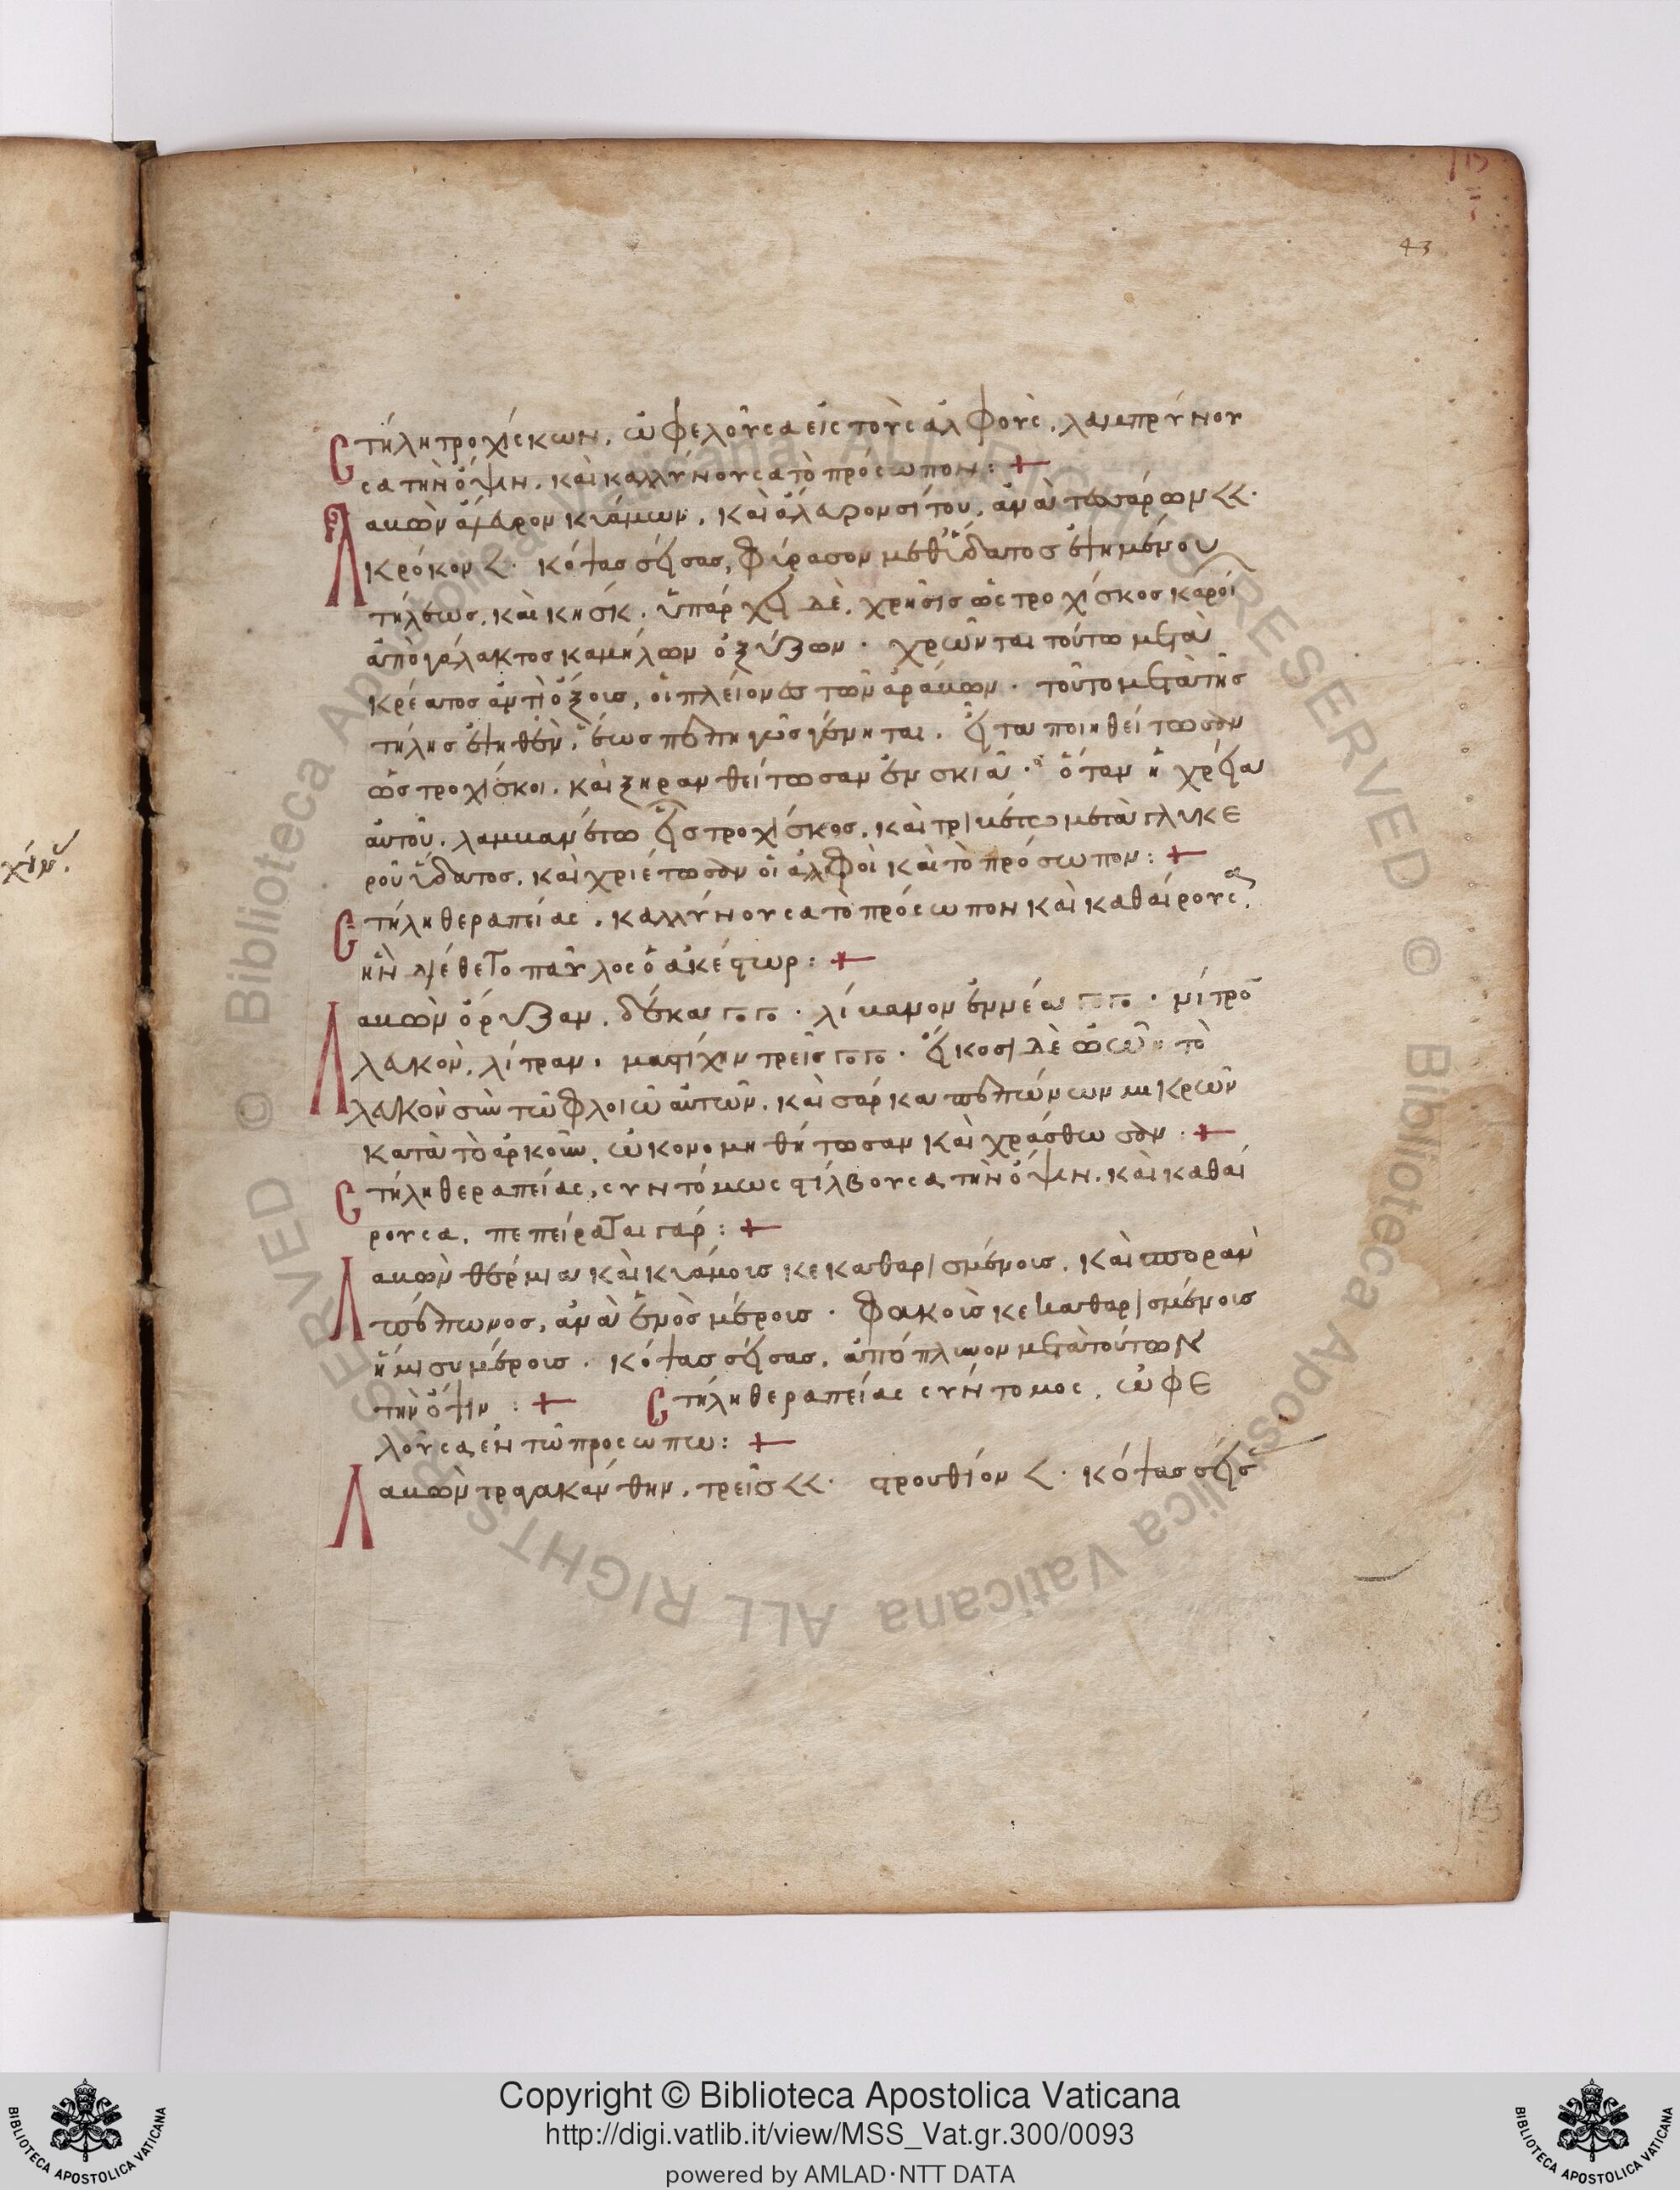 43
Στήλη τροχίσκων, ὠφελοῦσα εἰς τοὺς ἀλφοὺς, λαμπρύνου
σα τὴν ὄψιν, καὶ καλλύνουσα τὸ πρόσωπον: +
Λαβὼν κυάμων, καὶ σίτου, ἀνὰ τεσσάρων <<.
κρόκον <. κόψας σήσας, φύρασον μεθ ὕδατος ἑψημένου
χρῆσις ὡς τροχίσκος
ἀπὸ γάλακτος καμήλων ὀξύζων. χρῶνται τούτω μετὰ
κρέατος ἀντὶ ὄξους, οἱ πλείονες τῶν ἀράβων. τοῦτο μετὰ τῆς
τήλης ἑψηθὲν, ἕως πεπηγὼς γένηται. εἶτα ποιηθείτωσαν
ὡς τροχίσκοι, καὶ ξηρανθείτωσαν ἐν σκιᾶ. ὅταν ἢ χρεία
αὐτοῦ, λαμβανέτω εἷς τροχίσκος, καὶ τριβέτω μετὰ γλυκε
ροῦ ὕδατος, καὶ χριέτωσαν οἱ ἀλφοὶ καὶ τὸ πρόσωπον: +
Στήλη θεραπείας, καλλύνουσα τὸ πρόσωπον καὶ καθαίρουσα,
ἣν παῦλος ὁ ἀκέστωρ: +
Λαβὼν ὄρυζαν, δέκα γο γο. λίβανον ἐννέα γο γο. νίτρου
λευκὸν, λίτραν. μαστίχην τρεῖς γο γο. εἴκοσι δὲ ὠῶν τὸ
λευκὸν σὺν τῶ φλοιῶ αὐτῶν. καὶ σάρκα πεπώνων μικρῶν
κατὰ τὸ ἀρκοῦν, ὠκονομηθήτωσαν καὶ χράσθωσαν. +
Στήλη θεραπείας, συντόμως στίλβουσα τὴν ὄψιν, καὶ καθαί
ρουσα, πεπείραται γάρ: +
Λαβὼν θέρμια καὶ κυάμους κεκαθαρισμένους, καὶ σποραν
πέπωνος, ἀνὰ ἑνὸς μέρους. φακοὺς κεκαθαρισμένους
ἥμισυ μέρους. κόψας σήσας, ἀπόπλυνον μετὰ τούτων
τὴν ὄψιν: + Στήλη θεραπείας σύντομος, ὠφε
λοῦσα ἐν τῶ προσώπω: +
Λαβὼν τραγακάνθην, τρεῖς <<. στρουθίον <. κόψας σήσ
Copyright © Biblioteca Apostolica Vaticana
http://digi.vatlib.it/view/MSS_Vat.gr.300/0093
powered by AMLAD·NTT DATA
BIBLIOTECA APOSTOLICA VATICANA
BIBLIOTECA APOSTOLICA VATICANA
Biblioteca Apostolica Vaticana ALL RIGHTS RESERVED ©